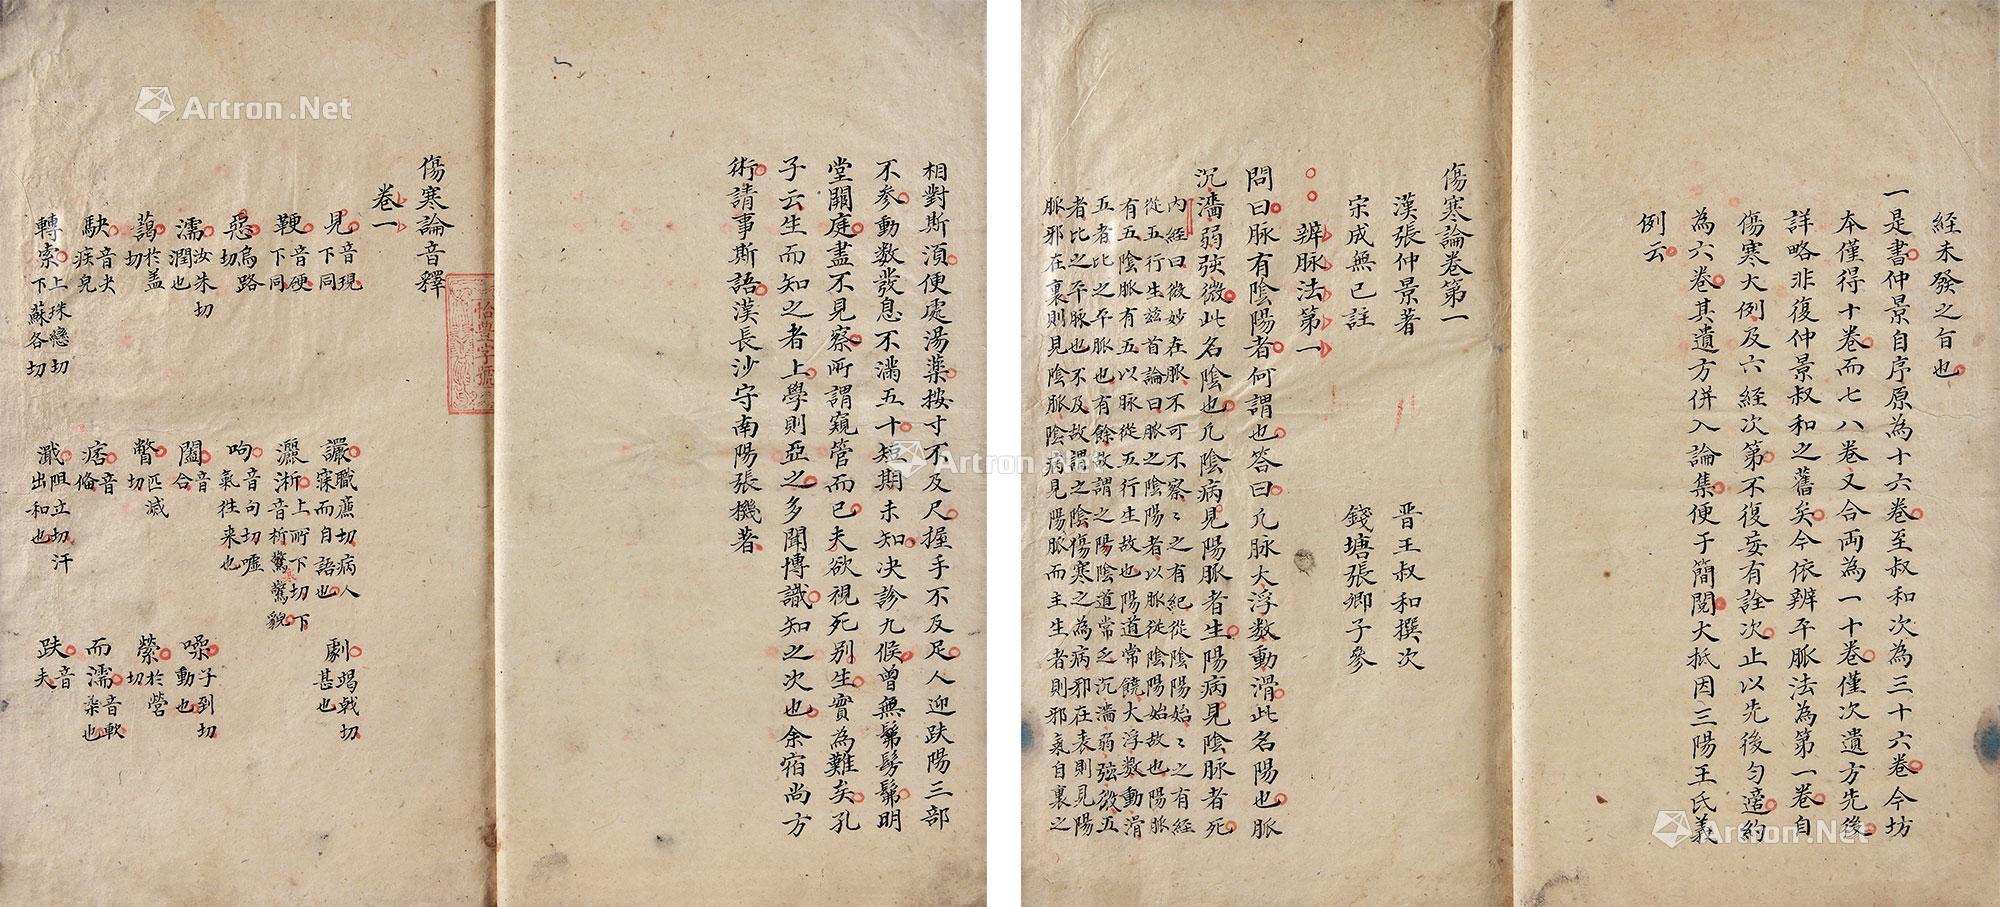 經未發之旨也
一是書仲景自序原為十六卷至叔和次為三十六卷今坊
本僅得十卷而七八卷又合両為一十卷僅次遺方先後
詳略非復仲景叔和之舊矣今依辨平脈法為第一卷自
傷寒大例及六經次第不復妄有詮次止以先後勻適約
為六卷其遺方併入論集便于簡閱大抵因三陽王氏義
例云
傷寒論卷第一
漢張仲景著
晋王叔和撰次
宋成無已註
錢塘張卿子參
辨脈法第一
問曰脈有陰陽者何謂也答曰凢脈大浮数動滑此名陽也脈
沉濇弱弦微此名陰也凢陰病見陽脈者生陽病見陰脈者死
内經曰微妙在脈不可不察〻之有紀從陰陽始〻之有經
從五行生兹首論曰脈之陰陽者以脈從陰陽始故也陽脈
有五陰脈有五以脈從五行生故也陽道常饒大浮数動滑
五者比之平脈也有餘故謂之陽陰道常乏沉濇弱弦微五
者比之平脈也不及故謂之陰傷寒之為病邪在表則見陽
脈邪在裏則見陰脈陰病見陽脈而主生者則邪氣自裏之
相對斯湏便處湯藥按寸不及尺握手不及足人迎趺陽三部
不参動数發息不滿五十短期未知决診九候曾無髴髣髴明
堂闕庭盡不見察所謂窺管而已夫欲視死别生實為難矣孔
子云生而知之者上學則亞之多聞博識知之次也余宿尚方
術請事斯語漢長沙守南陽張機著
傷寒論音釋
卷一
見音現下同
讝職廉切病人寐而自語也
劇竭戟切甚也
鞕音硬下同
灑淅上所下切下音析驚寒貌
惡烏路切
呴音句切噓氣往来也
噪子到切動也
濡汝朱切潤也
闔音合
縈於營切
藹於盖切
瞥匹滅切
而濡音軟柔也
䀢音决疾皃
痞音偹
趺音夫
轉索上珠戀切下蘇各切
濈阻立切汗出和也
怡豊字號
Artron.Net
Artron.Net
Artron.Net